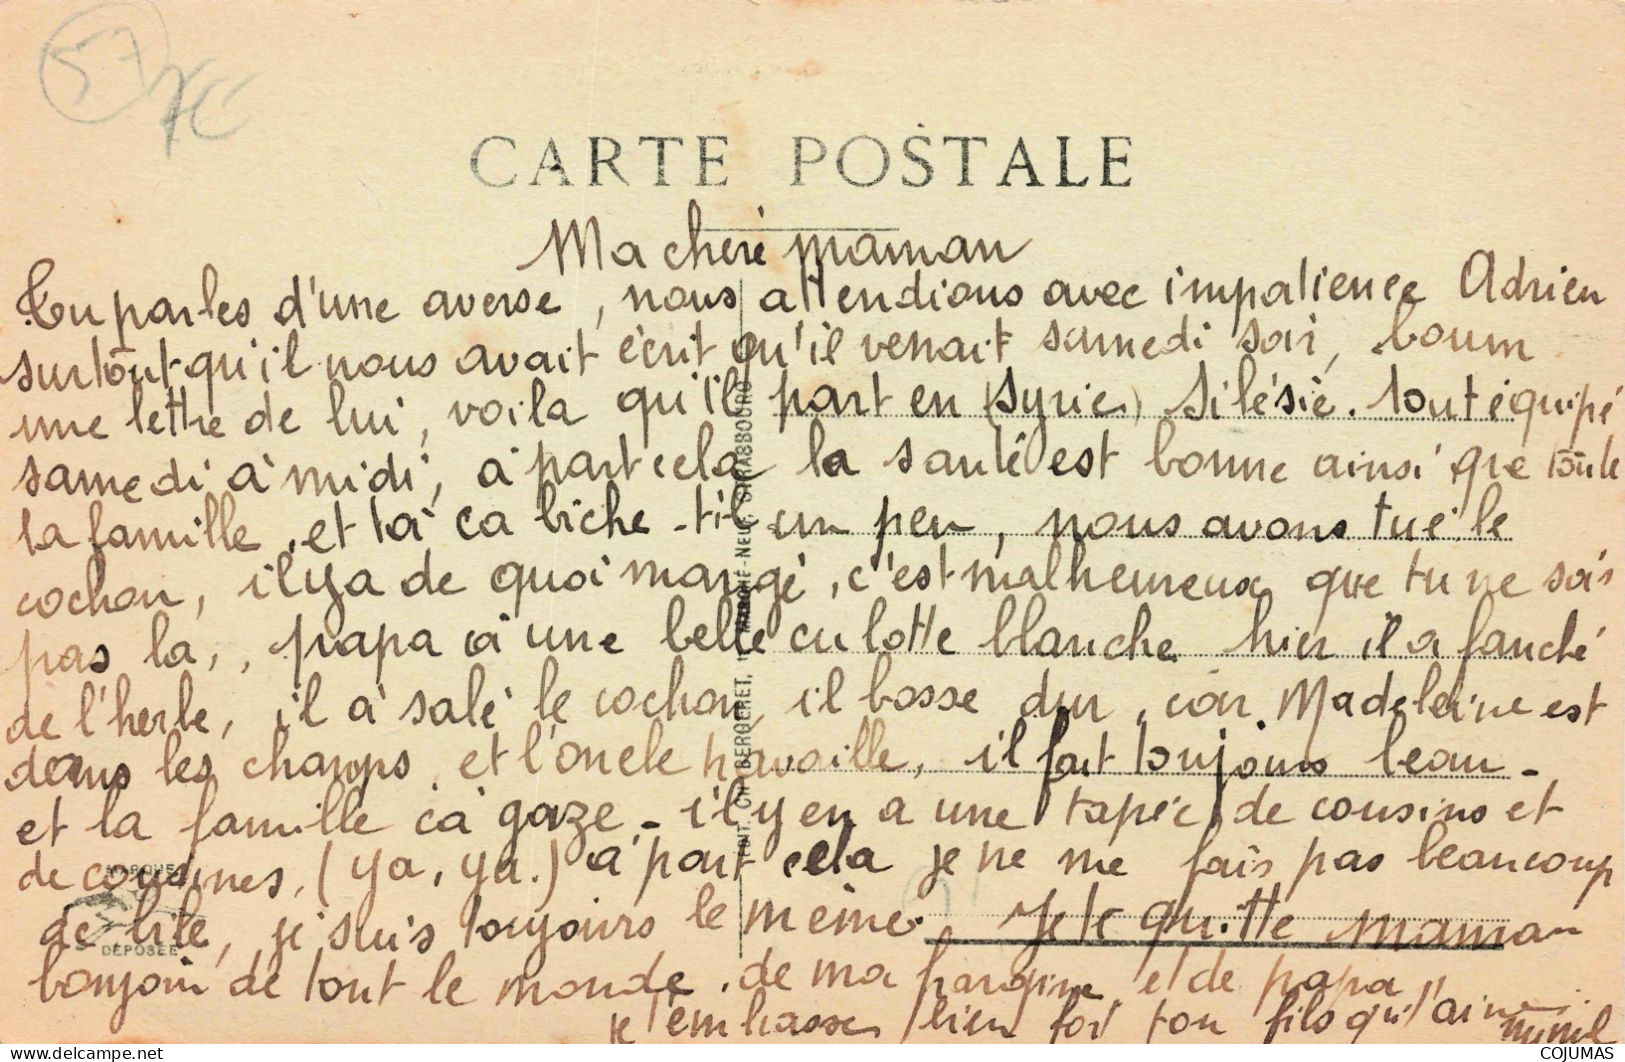 57
CARTE POSTALE
Ma cheré maman
Tu parles d'une averse, nous attendions avec impatience Adrien
surtout qu'il nous avait écrit qu'il venait samedi soir, boum
une lettre de lui, voila qu'il part en (Syrie) Silésie. tout équipé
samedi à midi, à part cela la santé est bonne ainsi que toute
la famille, et là ca biche-til un peu, nous avons tué le
cochon, il y a de quoi mangé, c'est malheureux que tu ne sois
pas la, papa à une belle culotte blanche hier il a fauché
de l'herbe, il à salé le cochon, il bosse dur, car Madeleine est
dans les champs, et l'oncle travaille, il fait toujours beau -
et la famille ca gaze - il y en a une tapée de cousins et
de cousines, (ya, ya.) à part cela je ne me fais pas beaucoup
de bile, je suis toujours le même. Je te quitte maman
bonjour de tout le monde, de ma frangine et de papa
je t'embrasse bien for ton fils qui t'aime
mimil
MARQUE
DÉPOSÉE
PHOT. CH. BERGERET, MARCHÉ-NEUF, STRASBOURG
COJUMAS